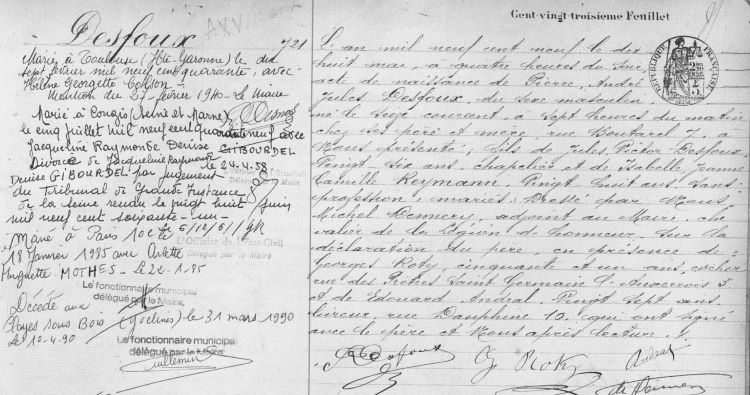 Cent-vingt-troisième Feuillet
Desfoux 721
Marié à Toulouse (Hte Garonne) le dix
sept février mil neuf cent quarante, avec
Hélène Georgette
Mention du 27 février 1940 - Le Maire
Marié à Congis (Seine et Marne)
le cinq juillet mil neuf cent quarante neuf avec
Jacqueline Raymonde Denise GIBOURDEL
le 24.4.58
Divorcé de Jacqueline Raymonde
Denise GIBOURDEL par jugement
du Tribunal de Grande Instance
de la Seine rendu le vingt huit juin
mil neuf cent soixante-un-
Marié à Paris 10e le
18 Janvier 1985 avec Arlette
Huguette MOTHES - Le 22.1.85
L'Officier de l'Etat-Civil
Délégué par le Maire
Le fonctionnaire municipal
délégué par le Maire,
Décédé aux
Clayes sous Bois (Yvelines) le 31 mars 1990
Le 10-4-90
Le fonctionnaire municipal
délégué par le Maire
Guillemin
L'an mil neuf cent neuf le dix
huit mai à quatre heures du soir
acte de naissance de Pierre, André
Jules Desfoux, du sexe masculin
né le sept courant à sept heures du matin
chez ses père et mère, rue Boutarel 7. à
Nous présenté; fils de Jules Victor Desfoux
vingt six ans, chapelier et de Isabelle Jeanne
Camille Reymann, vingt huit ans, sans
profession; mariés. Dressé par Nous
Michel adjoint au Maire, che
valier de la Légion d'honneur, sur la
déclaration du père, en présence de
Georges Roty, cinquante et un ans, cocher
rue des Prêtres Saint Germain l'Auxerrois 3
et de Edouard Andral, vingt sept ans
livreur, rue Dauphine 10, qui ont signé
avec le père et Nous après lecture.
Desfoux G Roty Andral
RÉPUBLIQUE FRANÇAISE